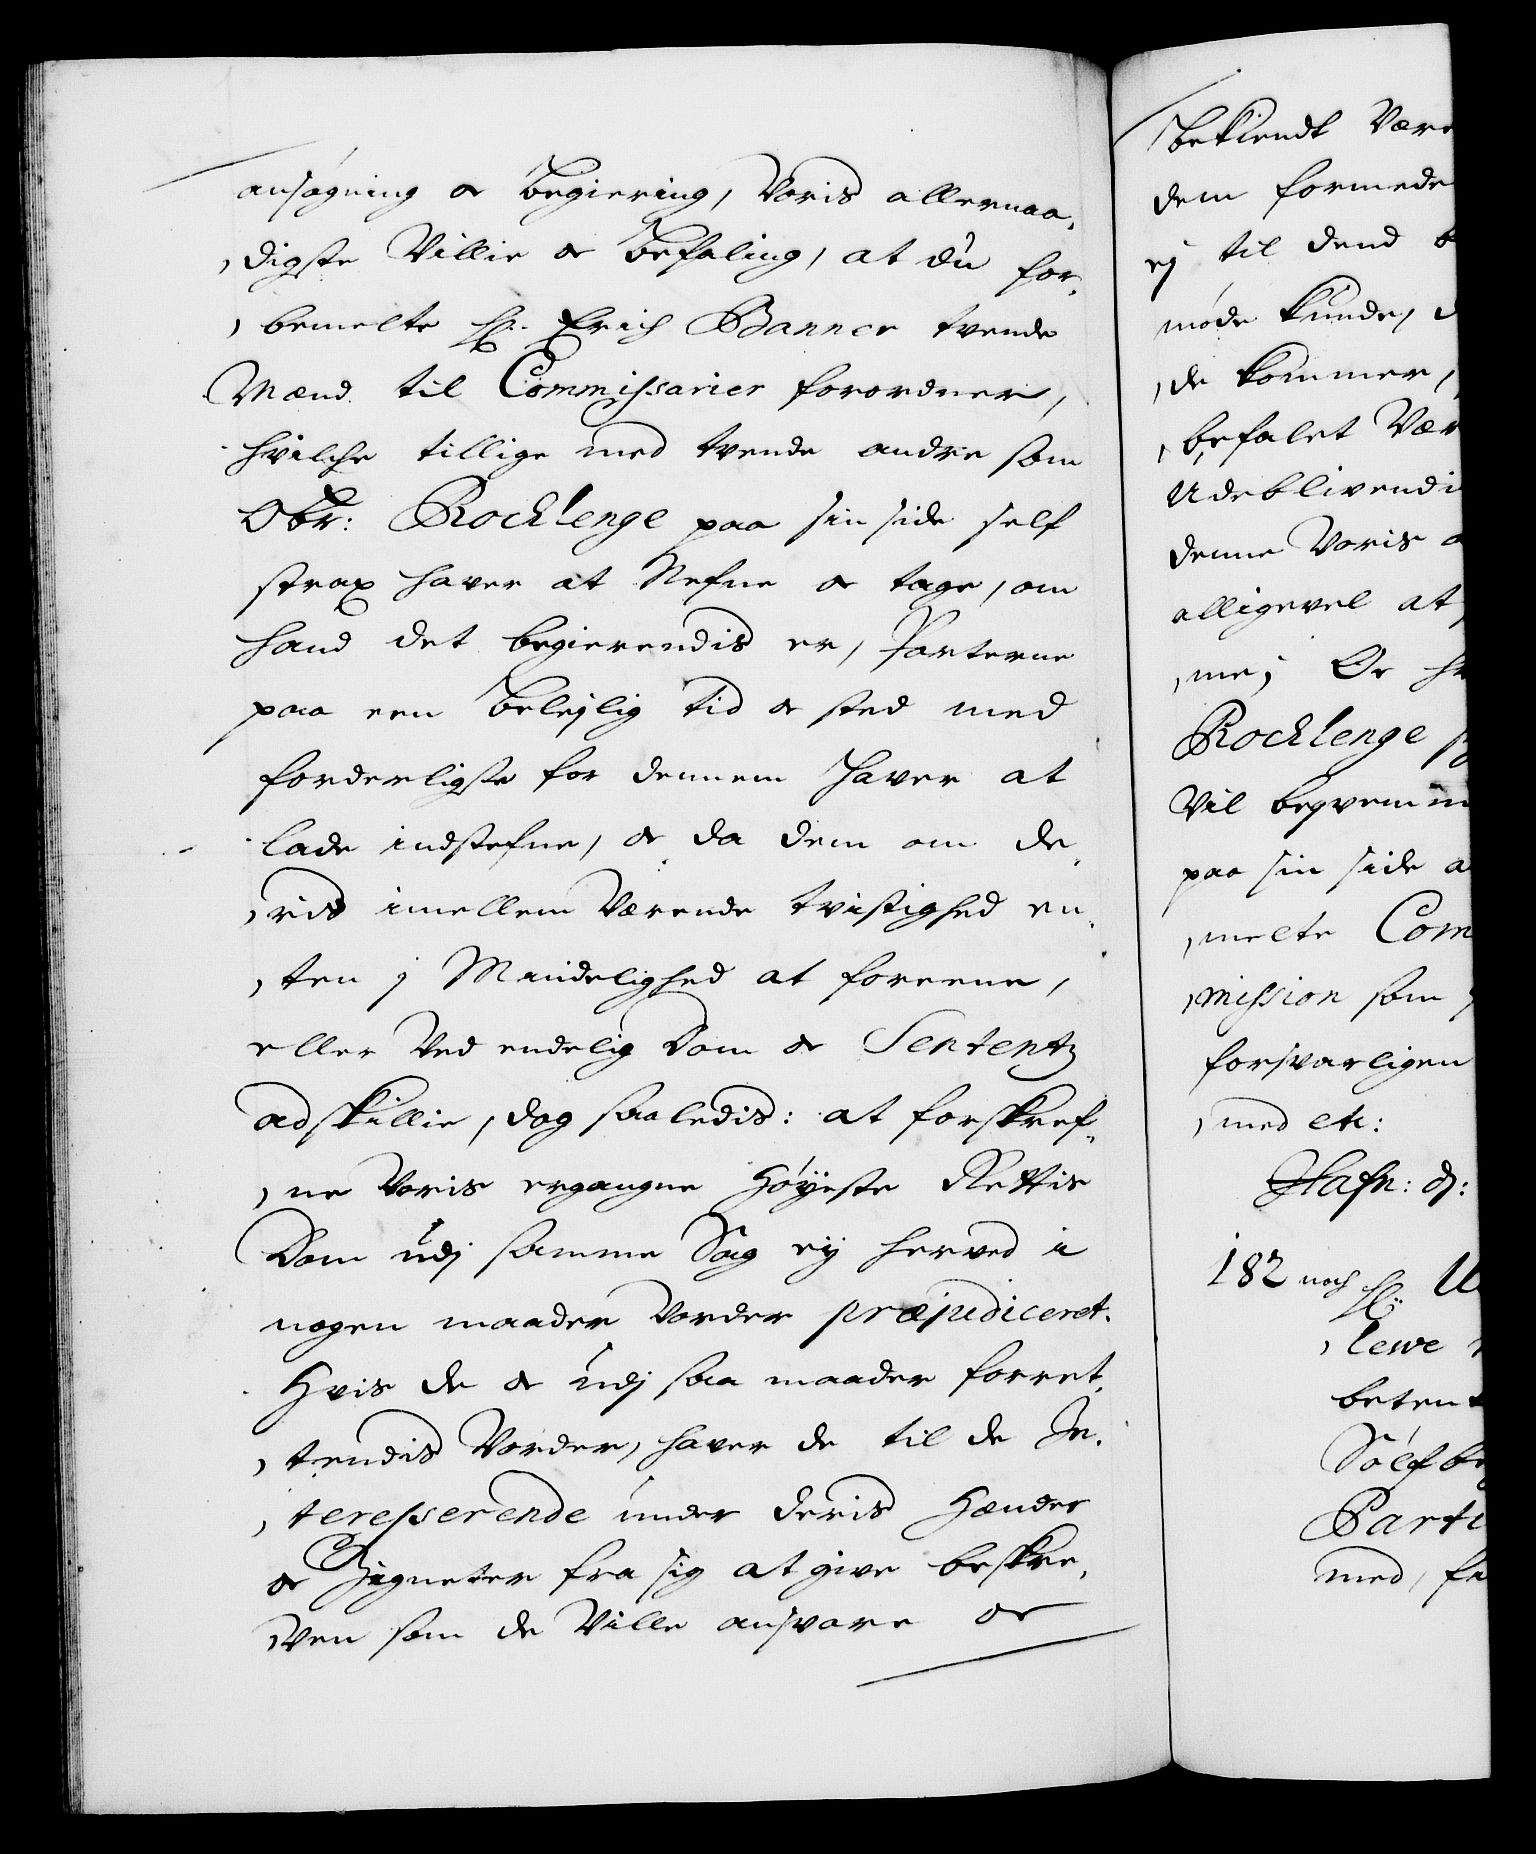 ansøgning oc begiering, Voris allernaa,
,digste Villie oc befaling, at du for,
,bemelte Hr. Erich Banner tvende
Mænd til Commissarier forordner,
hvilche tillige med tvende andre som
Obr: Rochlenge paa sin side self
strax hafver at Nefne oc tage, om
hand det begierendis er, Parterne
paa een beleylig tid oc sted med
forderligste for dennem hafver at
lade indstefne, oc da dem om de,
,ris imellem Værende tvistighed en,
,ten j Mindelighed at foreene,
eller Ved endelig Dom oc Sententz
adskillie, dog saaledis: at forskref,
,ne Voris ergangne Høyeste Rettis
Dom udj samme Sag ey herved i
nogen maader Vorder præjudiceret.
Hvis de oc udj saa maader forret,
,tendis Vorder, hafver de til de In,
,teresserende under deris Hænder
oc Zigneter fra sig at give beskre,
,ven som de Ville ansvare oc
bekiendt Være
dem formede
ej til dend b
møde kunde, d
,de kommer,
,befalet Vær
Udeblivendi
denne Voris a
alligevel at
,me; Oc h
Rochlenge s
Vil beqvemm
paa sin side a
,melte Com
,mission som
forsvarligen
,med etc:
Hafn: d:
182 noch Hr: U
,lewe
betent
Sølfbe
Parti
med, fr